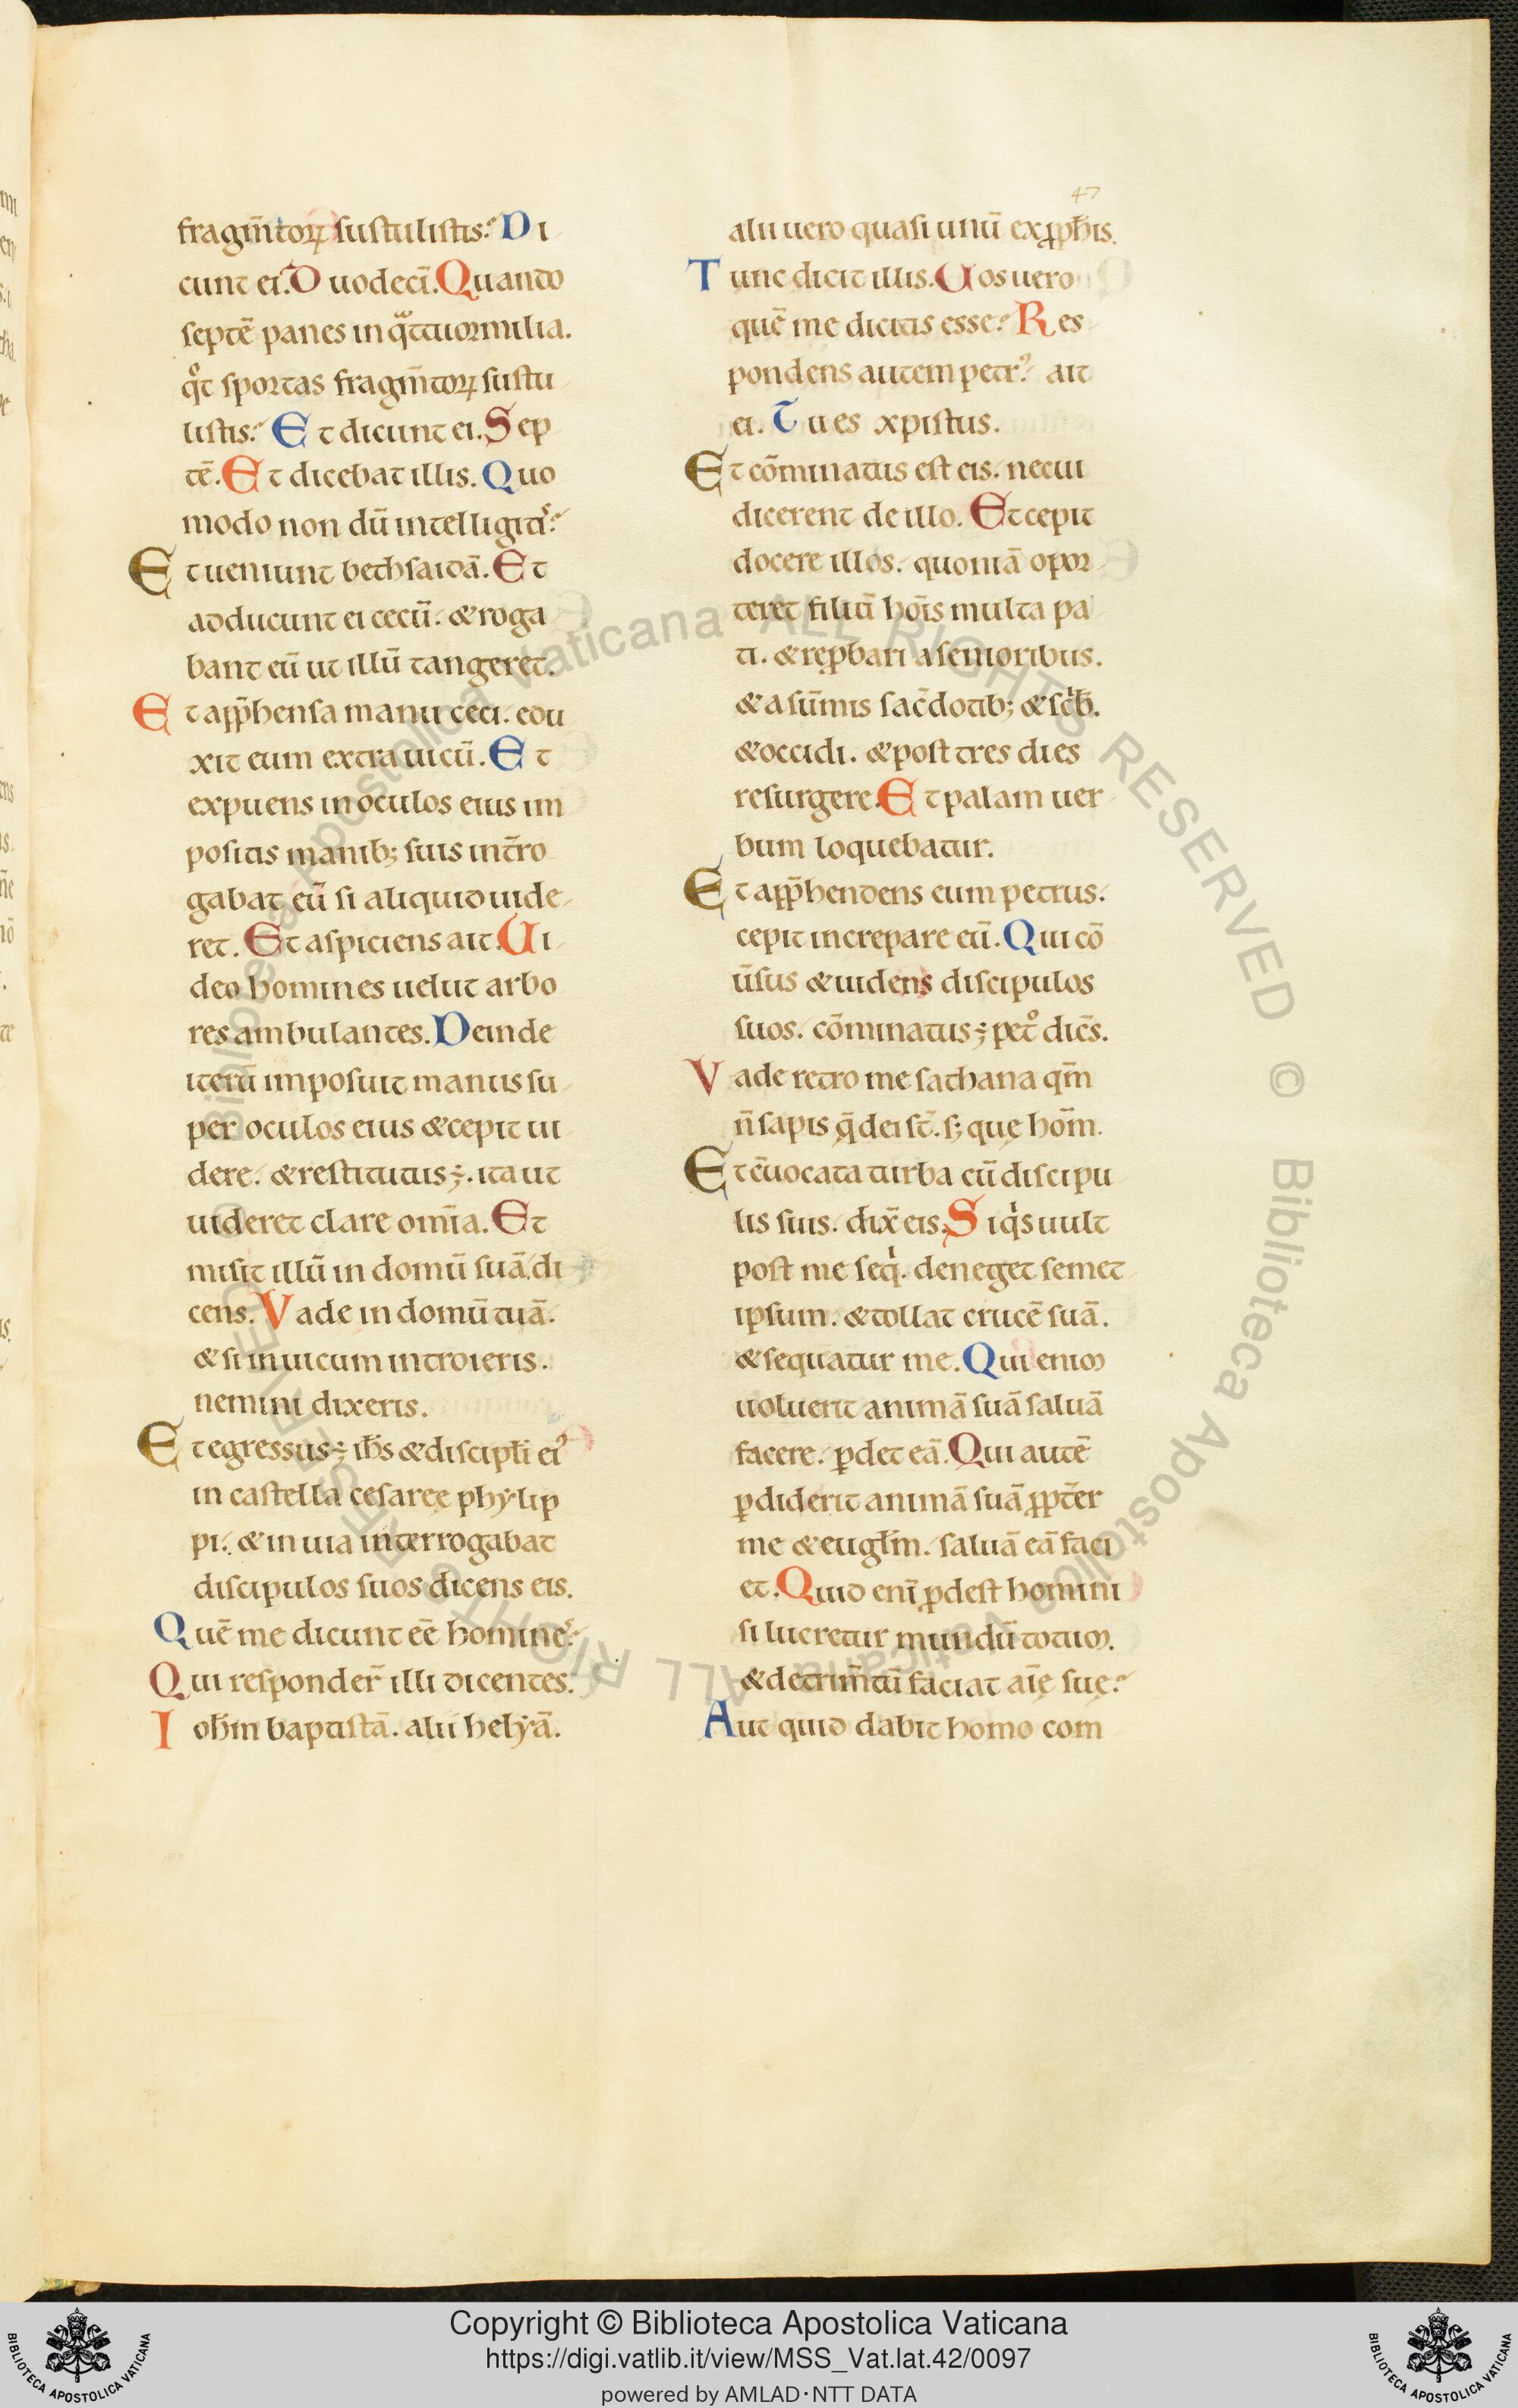 47
fragm̄toꝝ sustulistis? Di
cunt ei. Duodecī. Quando
septē panes in qͣttuormilia.
qͦt sportas fragm̄toꝝ sustu
listis? Et dicunt ei. Sep
tē. Et dicebat illis. Quo
modo non dū intelligitͥs?
Et ueniunt bethsaidā. Et
adducunt ei cecū. & roga
bant eū ut illū tangeret.
Et app̄hensa manu ceci. edu
xit eum extra uicū. Et
expuens in oculos eius im
positis manib; suis int̄ro
gabat eū si aliquid uide
ret. Et aspiciens ait. Ui
deo homines uelut arbo
res ambulantes. Deinde
iterū imposuit manus su
per oculos eius & cepit ui
dere. & restitutus ÷. ita ut
uideret clare om̄ia. Et
misit illū in domū suā, di
cens. Vade in domū tuā.
& si in uicum introieris.
nemini dixeris.
Et egressus ÷ ih̄s & discipƚi eiꝰ
in castella cesareę phylip
pi. & in uia interrogabat
discipulos suos dicens eis.
Quē me dicunt eē homineˢ?
Qui responder̄ illi dicentes.
Ioh̄m baptistā. alii helyā.
alii uero quasi unū ex ꝓph̄is.
Tunc dicit illis. Uos uero
quē me dicitis esse? Res
pondens autem petrꝰ ait
ei. Tu es xpistus.
Et cōminatus est eis. ne cui
dicerent de illo. Et cepit
docere illos. quoniā opor
teret filiū hōis multa pa
ti. & rep̱bari a senioribus.
& a sūmis sac̄dotib; & scͥb̄.
& occidi. & post tres dies
resurgere. Et palam uer
bum loquebatur.
Et app̄hendens eum petrus.
cepit increpare eū. Qui cō
ūsus & uidens discipulos
suos. cōminatus ÷ petͦ dic̄s.
Vade retro me sathana qm̄
n̄ sapis q̄ dei st̄. s; quę hom̄.
Et c̄uocata turba cū discipu
lis suis. dix̄ eis. Si qͥs uult
post me seqͥ. deneget semet
ipsum. & tollat crucē suā.
& sequatur me. Qui enim
uoluerit animā suā saluā
facere. ꝑdet eā. Qui autē
ꝑdiderit animā suā ꝓpt̄er
me & eugƚm. saluā eā faci
et. Quid enī ꝓdest homini
si lucretur mundū totum.
& detrim̄tū faciat aīę suę?
Aut quid dabit homo com
© Biblioteca Apostolica Vaticana ALL RIGHTS RESERVED
Copyright © Biblioteca Apostolica Vaticana
https://digi.vatlib.it/view/MSS_Vat.lat.42/0097
powered by AMLAD·NTT DATA
BIBLIOTECA APOSTOLICA VATICANA
BIBLIOTECA APOSTOLICA VATICANA